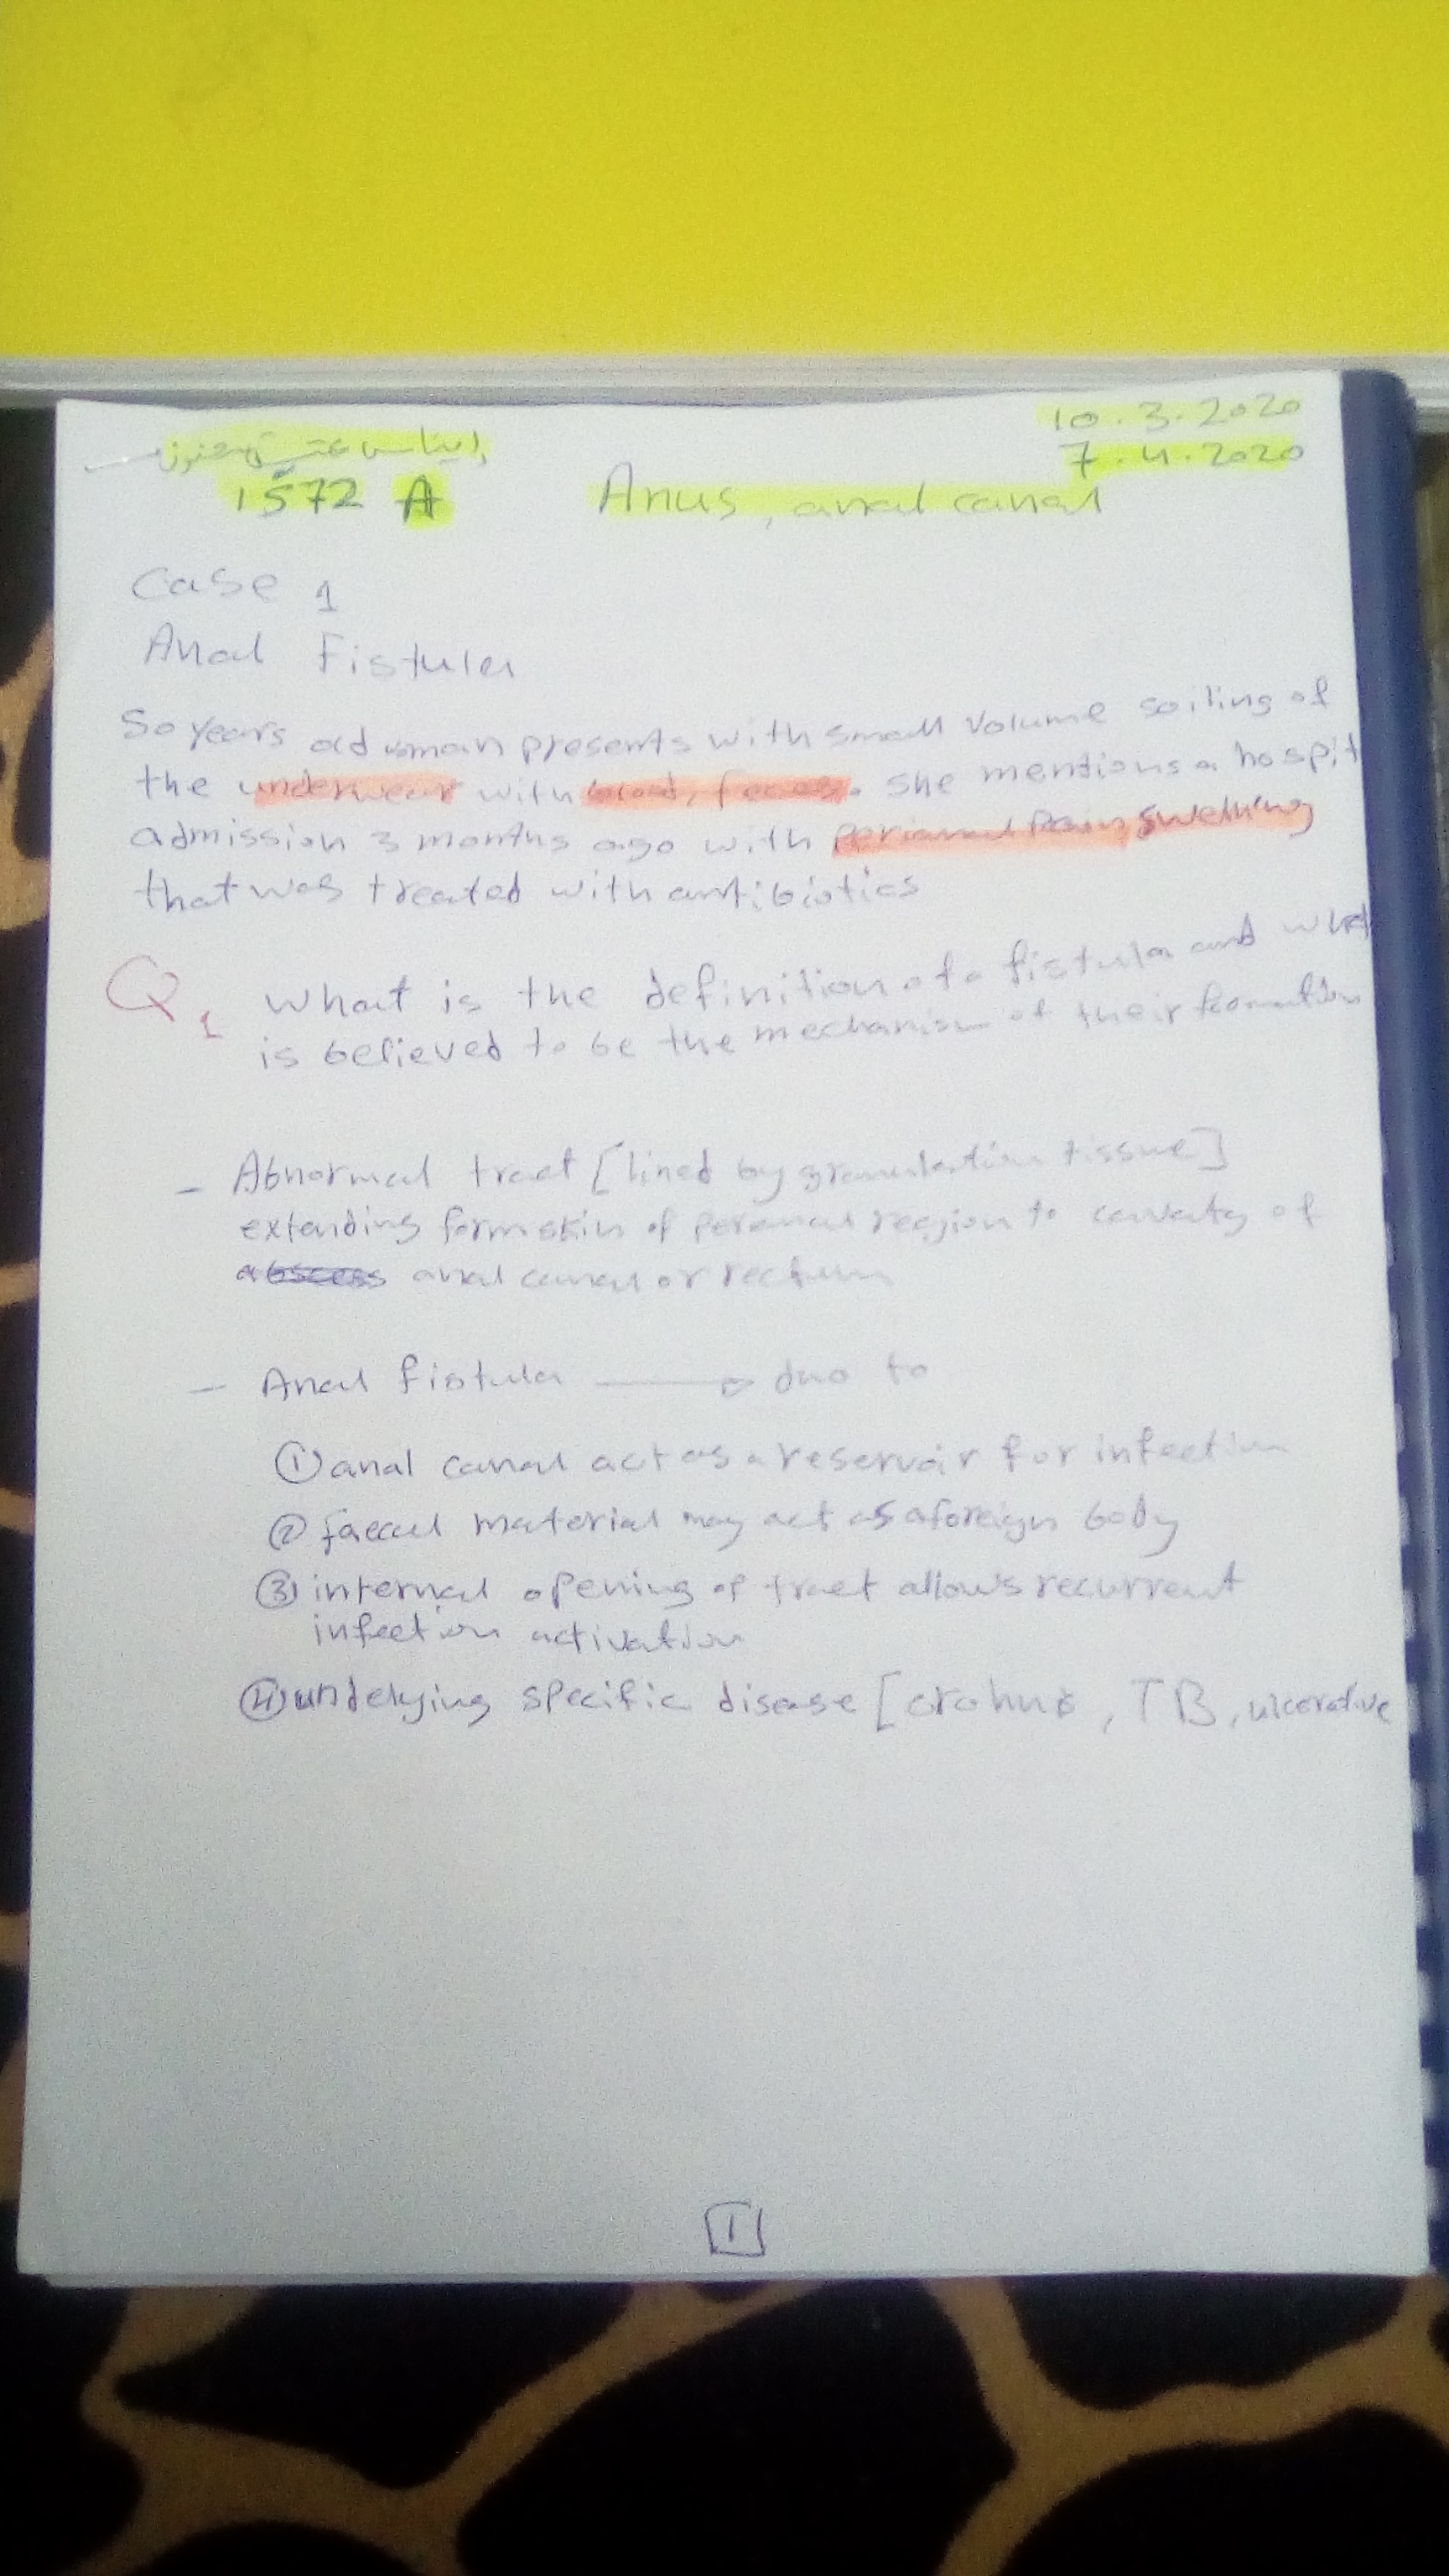 10.3.2020
7.4.2020
ايناس
1572 A
Anus, anal canal
Case 1
Anal Fistula
50 years old woman presents with small volume soiling of
the underwear with blood, feces. She mentions a hospit
admission 3 months ago with perianal pain, swelling
that was treated with antibiotics
Q1 What is the definition of a fistula and what
is believed to be the mechanism of their formation
- Abnormal tract [lined by granulation tissue]
extending form skin of perianal region to cavity of
abscess anal canal or rectum
- Anal fistula → due to
① anal canal act as a reservoir for infection
② faecal material may act as a foreign body
③ internal opening of tract allows recurrent
infection activation
④ undelying specific disease [crohns, TB, ulcerative
1